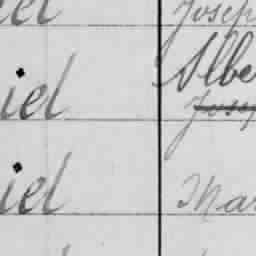 el Josep
iel Albe
Josep
iel Mar